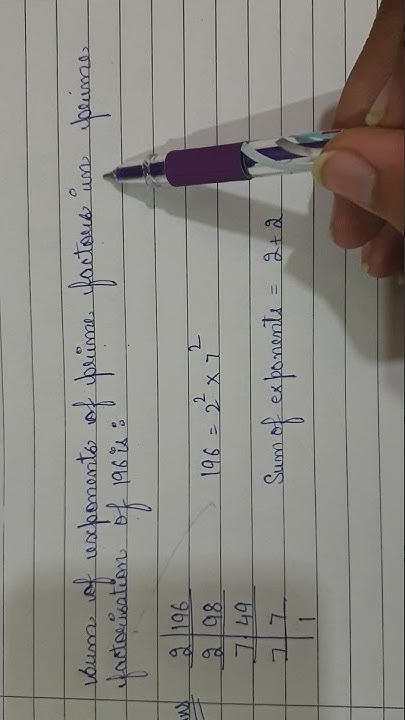 Sum of exponents of prime factors in prime
factorisation of 196 is:
Ans
2|196
2|98
7|49
7|7
|1
196 = 2² × 7²
Sum of exponents = 2+2